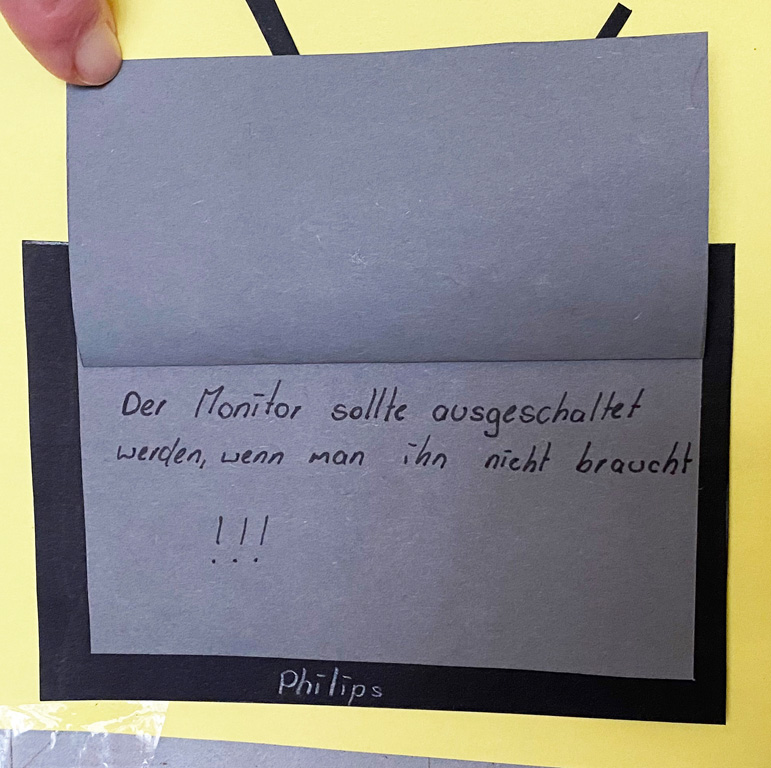 Der Monitor sollte ausgeschaltet
werden, wenn man ihn nicht braucht
!!!
Philips